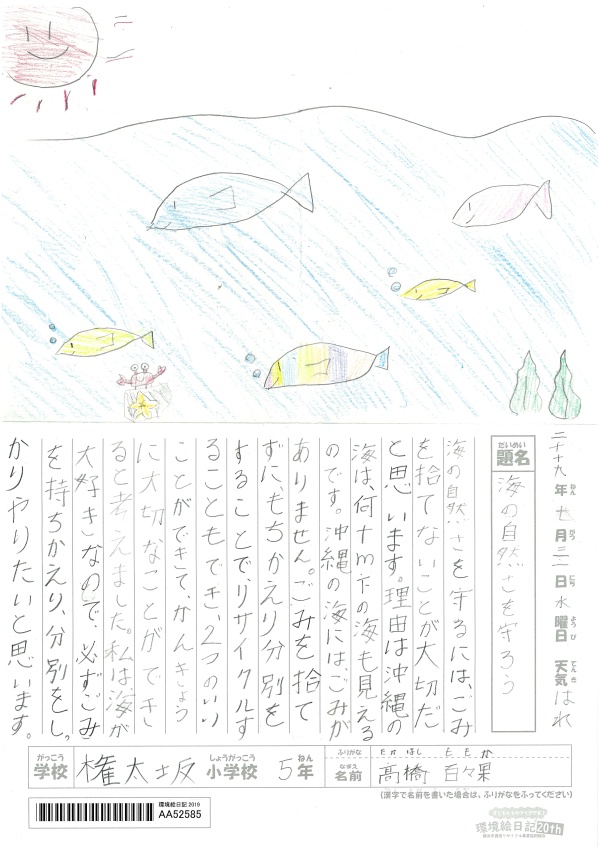 二十十九年七月三一日水曜日 天気はれ
ねん がつ にち ようび てんき
だいめい
題名 海の自然さを守ろう
海の自然さを守るには、ごみ
を捨てないことが大切だ
と思います。理由は沖縄の
海は、何十m下の海も見える
のです。沖縄の海には、ごみが
ありません。ごみを捨て
ずに、もちかえり分別を
することで、リサイクルす
ることもでき、2つのいい
ことができて、かんきょう
に大切なことができ
ると考えました。私は海が
大好きなので、必ずごみ
を持ちかえり、分別をし。
かりやりたいと思います。
がっこう しょうがっこう ねん
学校 権太坂小学校 5年
ふりがな たかはし ももか
なまえ
名前 髙橋 百々果
(漢字で名前を書いた場合は、ふりがなをふってください)
環境絵日記2019
AA52585
環境絵日記20th